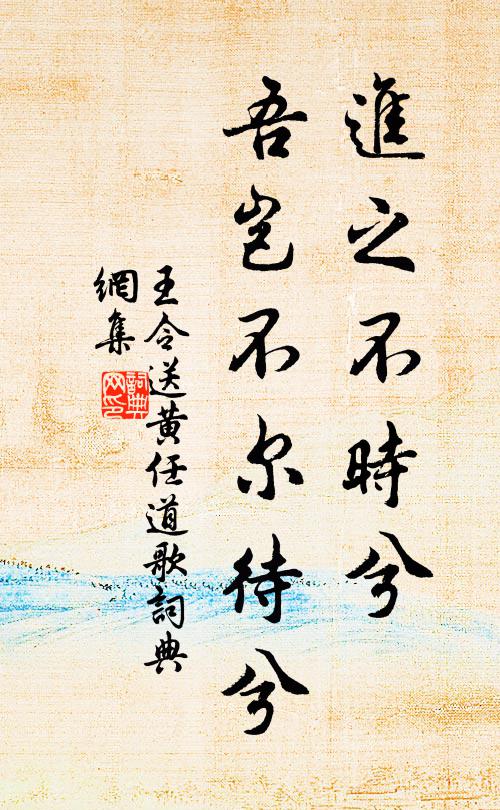 進之不時兮
吾豈不尔待兮
王令送黃任道歌詞典
網集
詞典
网印